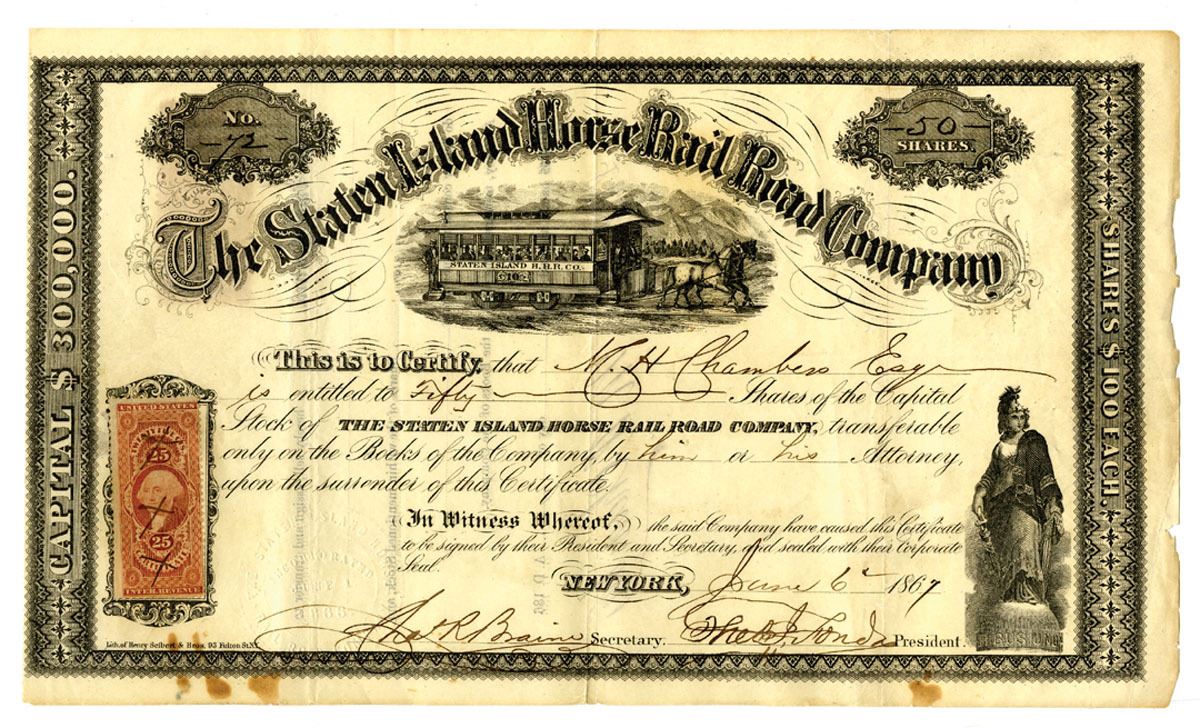 No.
72
50
SHARES.
The Staten Island Horse Rail Road Company
STATEN ISLAND H.R.R. CO.
CAPITAL $ 300,000.
SHARES $ 100 EACH.
This is to Certify, that M. H Chambers Esqr
is entitled to Fifty Shares of the Capital
Stock of THE STATEN ISLAND HORSE RAIL ROAD COMPANY, transferable
only on the Books of the Company, by him or his Attorney,
upon the surrender of this Certificate.
In Witness Whereof, the said Company have caused this Certificate
to be signed by their President and Secretary, and sealed with their Corporate
Seal.
NEW YORK, June 6 1867
Chas R Braine Secretary.
President.
UNITED STATES
25
25
CERTIFICATE
INTER. REVENUE
Lith. of Henry Seibert & Bros. 93 Fulton St. N.Y.